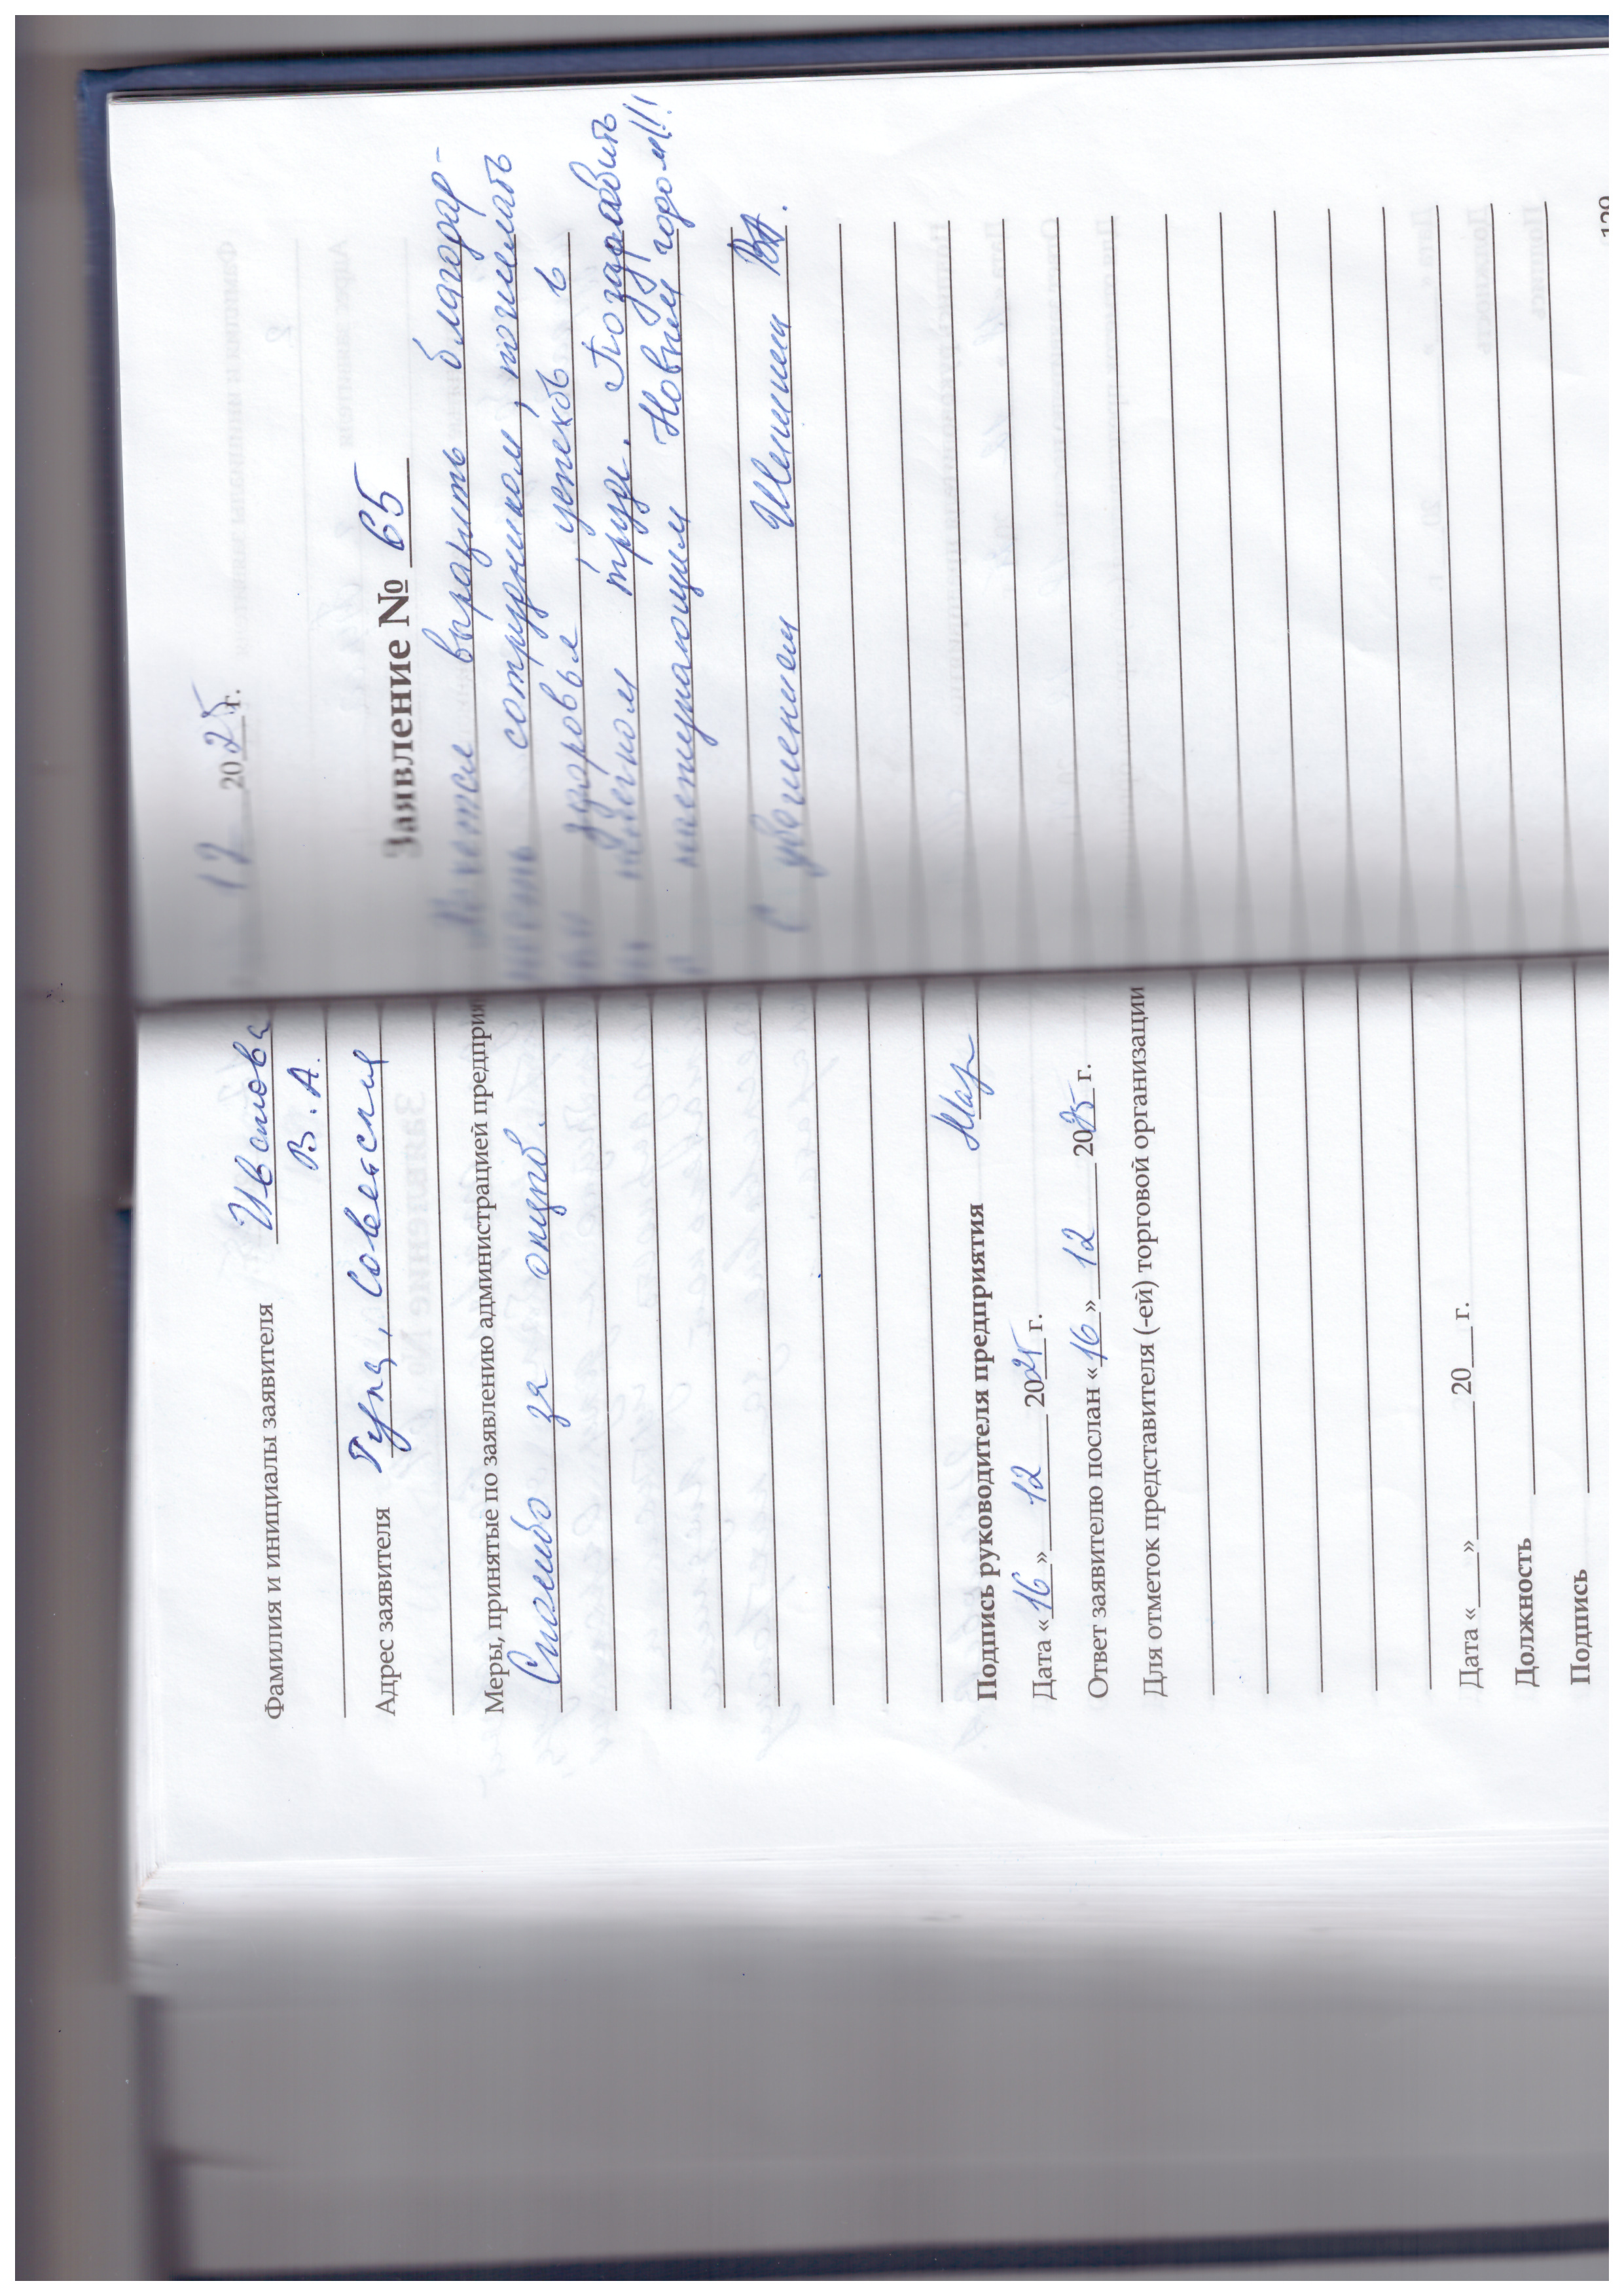 Фамилия и инициалы заявителя
В. А.
Адрес заявителя Тула, Советская
Меры, принятые по заявлению администрацией предпри
Спасибо за отзыв.
Подпись руководителя предприятия
Дата «16» 12 2025 г.
Ответ заявителю послан «16» 12 2025 г.
Для отметок представителя (-ей) торговой организации
Дата «___» ______ 20__ г.
Должность
Подпись
12 2025 г.
Заявление № 65
хочется выразить благодар-
ность сотрудникам, пожелать
здоровья, успехов в
труде. Поздравить
с наступающим Новым годом!!!
С уважением ВА.
129